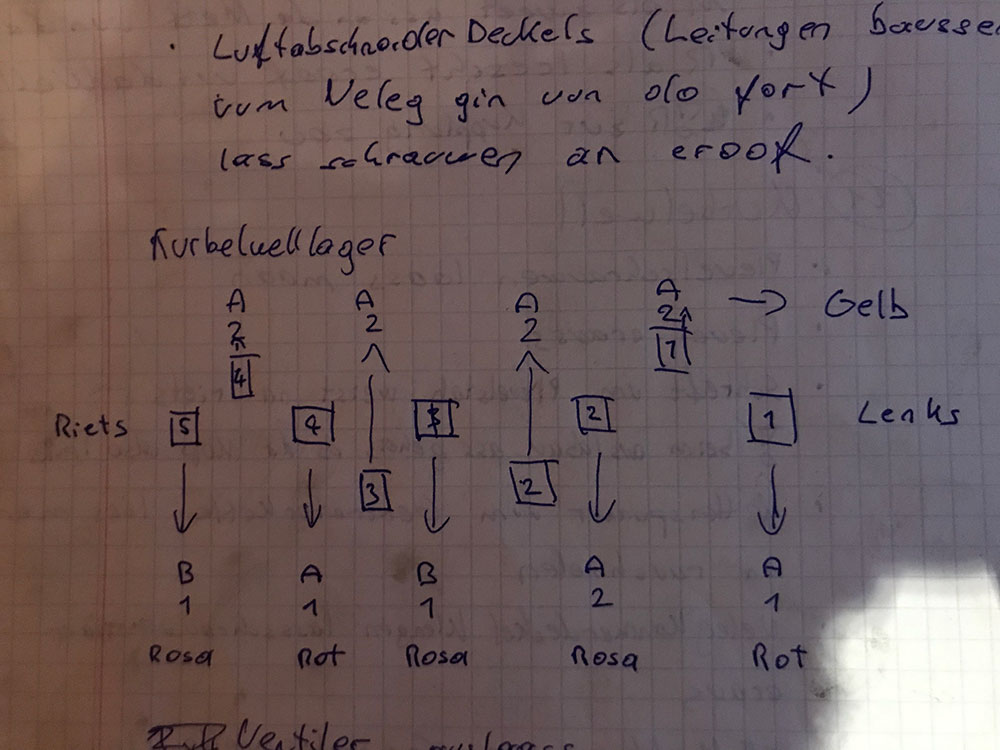 · Luftabschneider Deckels (Leitungen baussen
vum Veleg gin van do fort)
lass schrauwen an eroof.
Kurbelwelllager
A A A A → Gelb
2 2 2 2
4 1
Riets 5 4 3 2 1 Lenks
3 2
B A B A A
1 1 1 2 1
Rosa Rot Rosa Rosa Rot
Ventiler